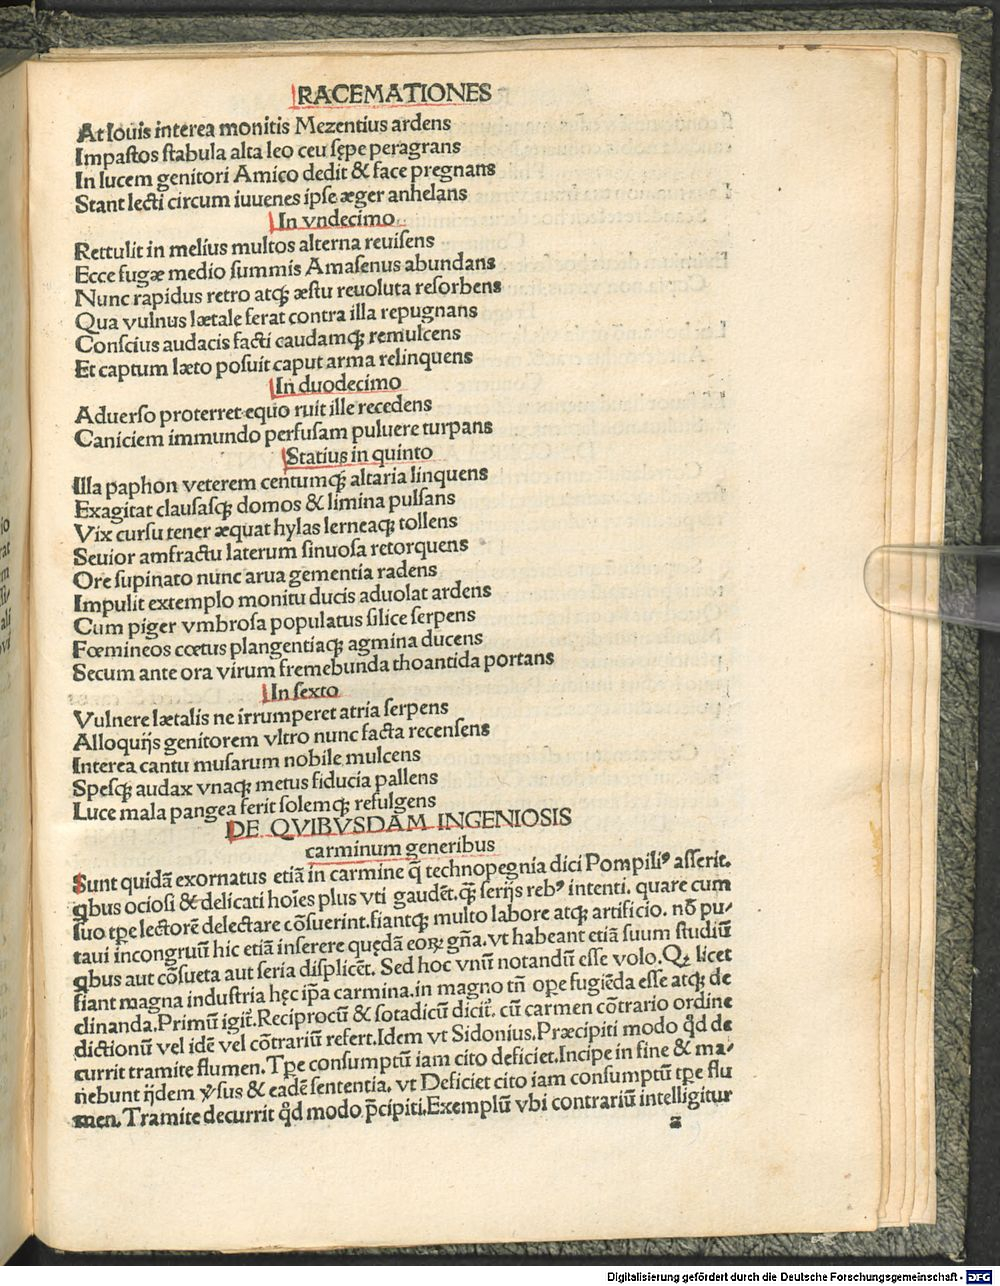 RACEMATIONES
At Iouis interea monitis Mezentius ardens
Impastos stabula alta leo ceu sępe peragrans
In lucem genitori Amico dedit & face pregnans
Stant lecti circum iuuenes ipse æger anhelans
In vndecimo
Rettulit in melius multos alterna reuisens
Ecce fugæ medio summis Amasenus abundans
Nunc rapidus retro atqꝫ æstu reuoluta resorbens
Qua vulnus lætale ferat contra illa repugnans
Conscius audacis facti caudamqꝫ remulcens
Et captum læto posuit caput arma relinquens
In duodecimo
Aduerso proterret equio ruit ille recedens
Caniciem immundo perfusam puluere turpans
Statius in quinto
Illa paphon veterem centumqꝫ altaria linquens
Exagitat clausasqꝫ domos & limina pulsans
Vix cursu tener æquat hylas lerneaqꝫ tollens
Seuior amfractu laterum sinuosa retorquens
Ore supinato nunc arua gementia radens
Impulit extemplo monitu ducis aduolat ardens
Cum piger vmbrosa populatus silice serpens
Fœmineos cœtus plangentiaqꝫ agmina ducens
Secum ante ora virum fremebunda thoantida portans
In sexto
Vulnere lætalis ne irrumperet atria serpens
Alloquijs genitorem vltro nunc facta recensens
Interea cantu musarum nobile mulcens
Spesqꝫ audax vnaqꝫ metus fiducia pallens
Luce mala pangea ferit solemqꝫ refulgens
DE QVIBVSDAM INGENIOSIS
carminum generibus
Sunt quidā exornatus etiā in carmine q̄ technopegnia dici Pompiliꝰ asserit.
ꝗbus ociosi & delicati hoīes plus vti gaudēt. qꝫ̄ serijs rebꝰ intenti. quare cum
suo tꝑe lectorē delectare cōsuerint. fiantqꝫ multo labore atqꝫ artificio. nō pu/
taui incongruū hic etiā inserere quędā eoꝝ gn̄a. vt habeant etiā suum studiū
ꝗbus aut cōsueta aut seria displicēt. Sed hoc vnū notandū esse volo. Qꝫ licet
fiant magna industria hęc ip̄a carmina. in magno tn̄ oꝑe fugiēda esse atqꝫ de
clinanda. Primū igit̄. Reciprocū & sotadicū dicit̄. cū carmen cōtrario ordine
dictionū vel idē vel cōtrariū refert. Idem vt Sidonius. Præcipiti modo qd̄ de
currit tramite flumen. Tꝑe consumptū iam cito deficiet. Incipe in fine & ma/
nebunt ijdem v̓sus & eadē sententia. vt Deficiet cito iam consumptū tꝑe flu
men. Tramite decurrit qd̄ modo p̄cipiti. Exemplū vbi contrariū intelligitur